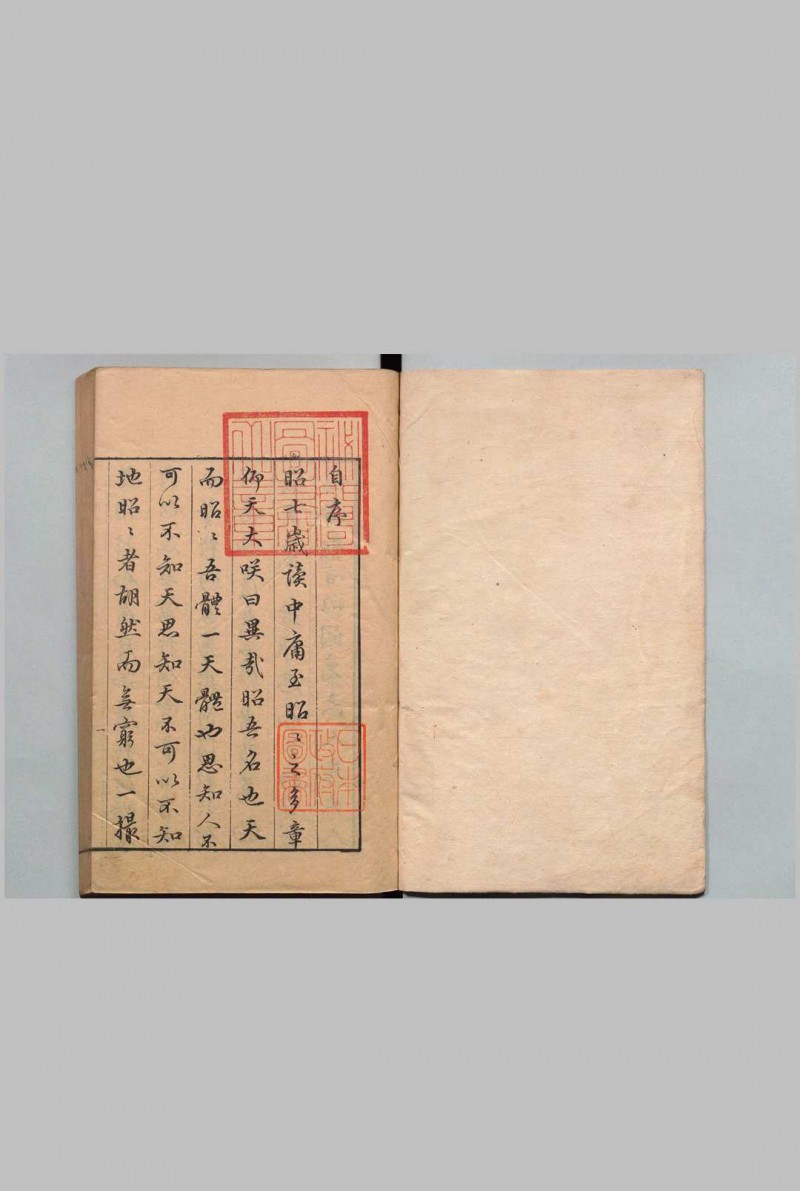 自序
昭七歲讀中庸至昭〻之多章
仰天大咲曰異哉昭吾名也天
而昭〻吾體一天體也思知人不
可以不知天思知天不可以不知
地昭〻者胡然而無窮也一撮
日本
政府
圖書